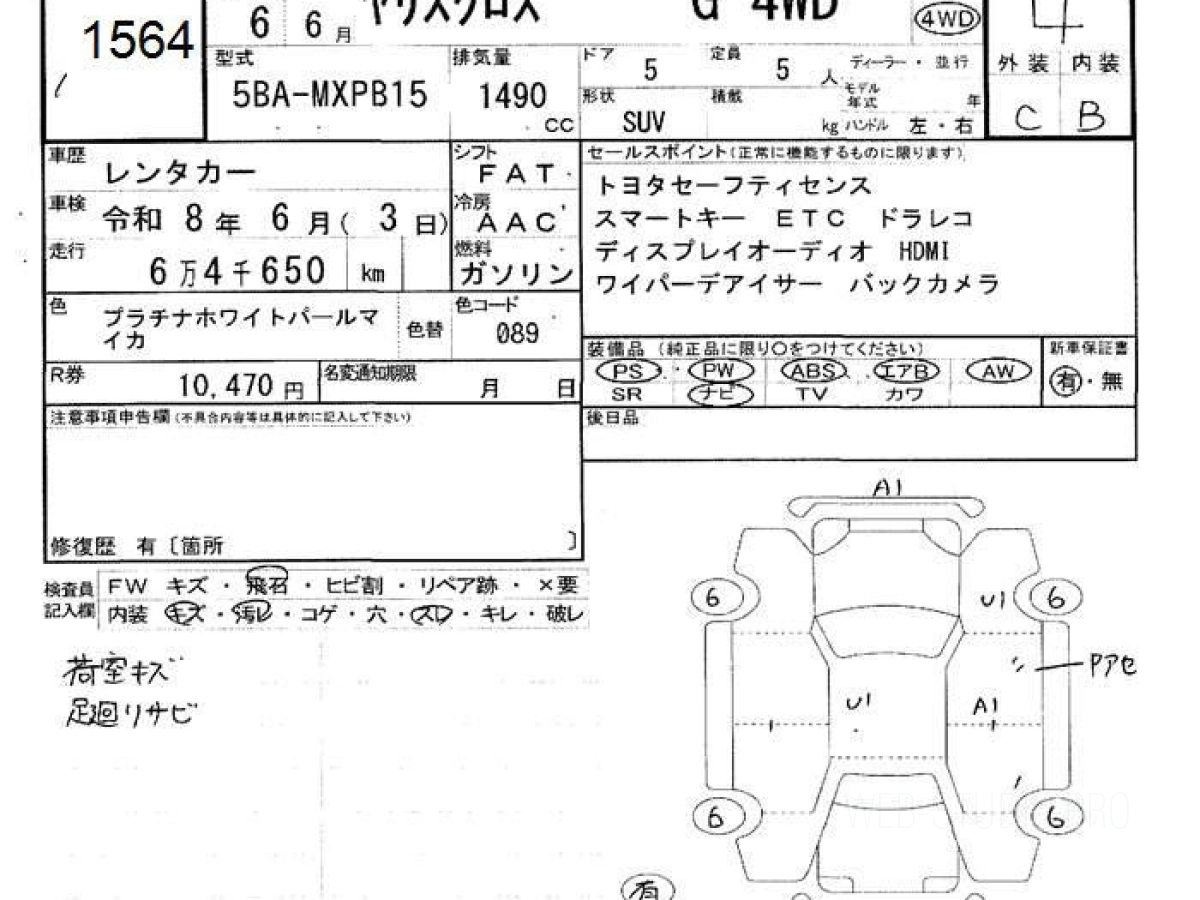 1564
6 6月 ヤリスクロス G 4WD 4WD
型式 5BA-MXPB15
排気量 1490 CC
ドア 5 定員 5 人 ディーラー・並行
形状 SUV 積載 kg モデル年式 年
ハンドル 左・右
外装 内装
C B
車歴 レンタカー
シフト FAT
車検 令和 8年 6月( 3日)
冷房 AAC
走行 6万4千650 km
燃料 ガソリン
色 プラチナホワイトパールマイカ 色替
色コード 089
R券 10,470円 名変通知期限 月 日
セールスポイント(正常に機能するものに限ります)
トヨタセーフティセンス
スマートキー ETC ドラレコ
ディスプレイオーディオ HDMI
ワイパーデアイサー バックカメラ
装備品 (純正品に限り○をつけてください) 新車保証書
PS PW ABS エアB AW 有・無
SR ナビ TV カワ
後日品
注意事項申告欄(不具合内容等は具体的に記入して下さい)
修復歴 有〔箇所 〕
検査員記入欄
FW キズ・飛石・ヒビ割・リペア跡・×要
内装 キズ・汚レ・コゲ・穴・スレ・キレ・破レ
荷室キズ
足廻りサビ
A1
6 U1 6
Pアセ
U1 A1
6 6
有